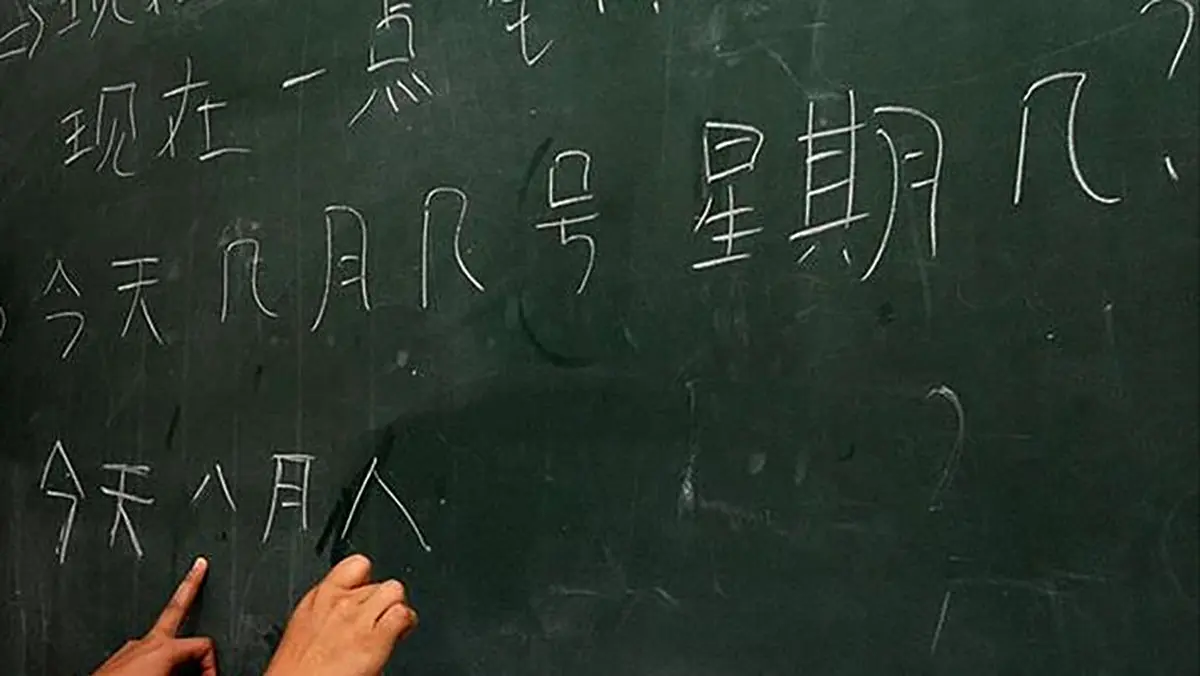 现在一点
今天几月几号 星期几?
今天八月八